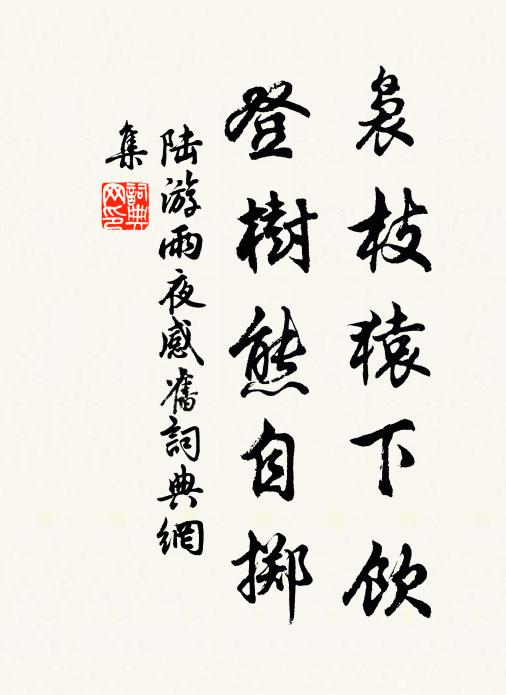 袅枝猿下飲
登樹熊自擲
陸游雨夜感舊詞典網
集
詞典網印